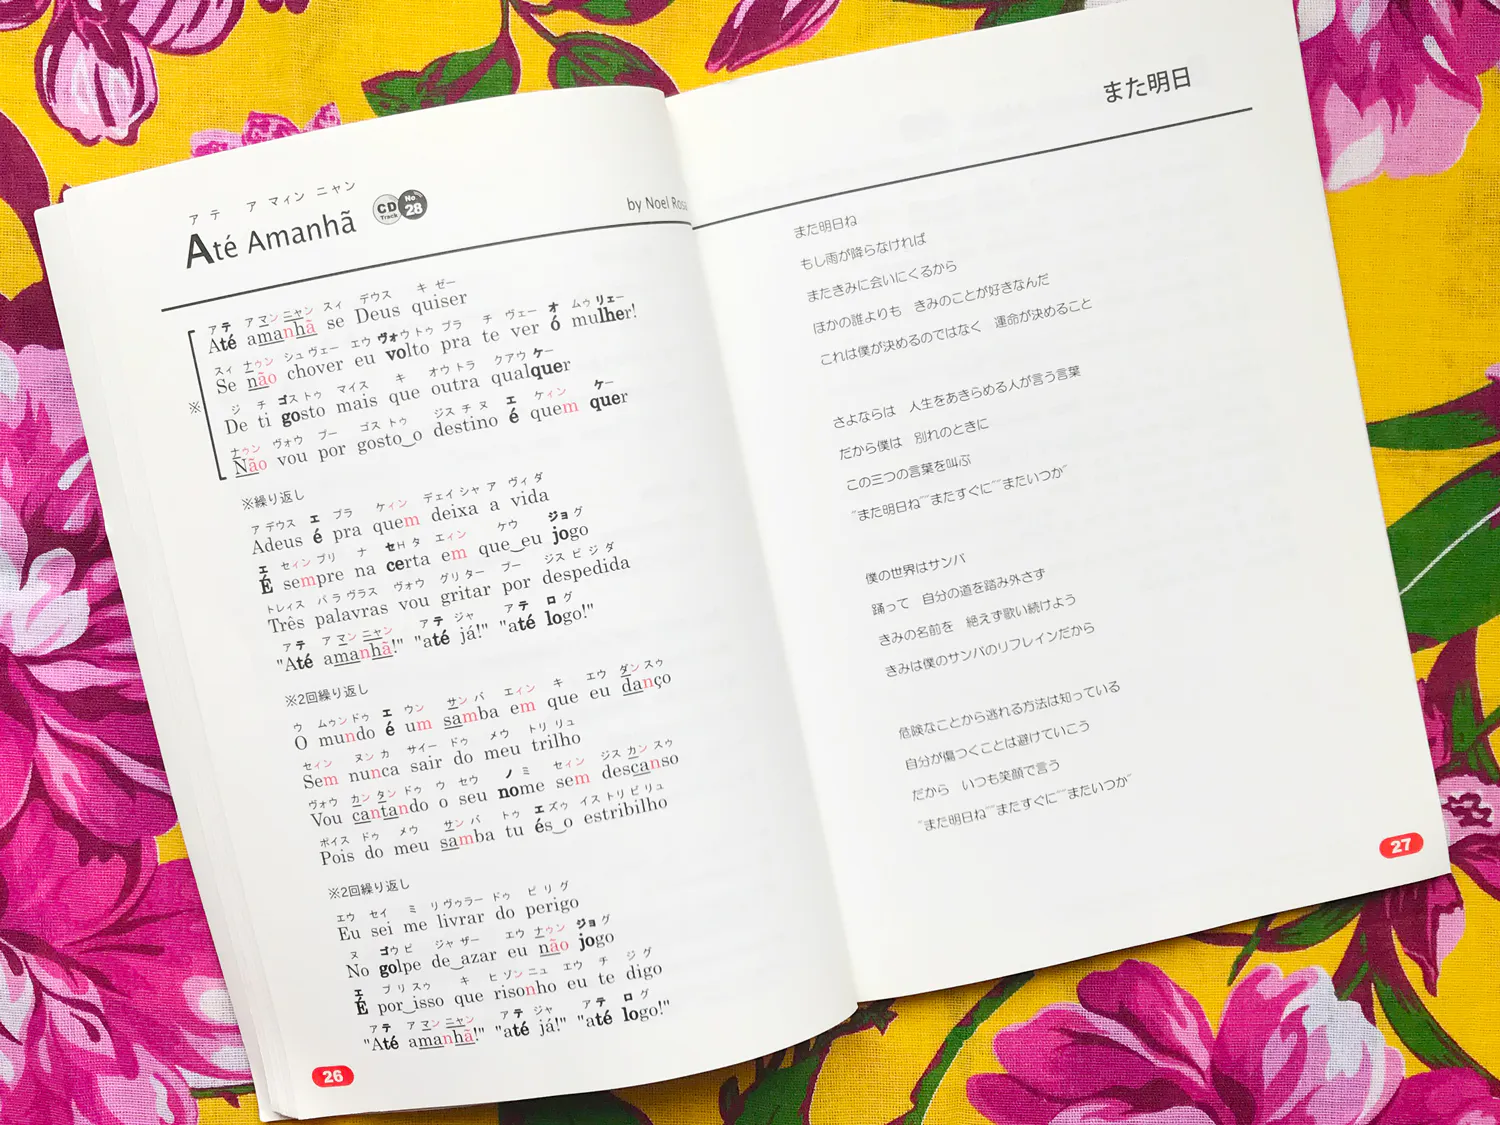 アテ ア マィン ニャン
Até Amanhã
CD Track No 28
by Noel Rosa
アテ ア マン ニャン スィ デウス キ ゼー
Até amanhã se Deus quiser
スィ ナゥン シュヴェー エウ ヴォウ トゥ プラ チ ヴェー オ ムゥ リェー
Se não chover eu volto pra te ver ó mulher!
ジ チ ゴストゥ マイス キ オウトラ クアウ ケー
De ti gosto mais que outra qualquer
ナゥン ヴォウ プー ゴストゥ ジスチヌ エ ケィン ケー
Não vou por gosto o destino é quem quer
※
※繰り返し
アデウス エ プラ ケィン デェイシャ ア ヴィダ
Adeus é pra quem deixa a vida
エ センィプリ ナ セHタ エィン ケウ ジョグ
É sempre na certa em que eu jogo
トレィス パラヴラス ヴォウ グリター プー ジスピジダ
Três palavras vou gritar por despedida
アテ ア マン ニャン アテ ジャ アテ ログ
"Até amanhã!" "até já!" "até logo!"
※2回繰り返し
ウ ムゥンドゥ エ ウン サンバ エィン キ エウ ダンスゥ
O mundo é um samba em que eu danço
セィン ヌンカ サイー ドゥ メウ トリリュ
Sem nunca sair do meu trilho
ヴォウ カンタンドゥ ウ セウ ノミ セィン ジスカンスゥ
Vou cantando o seu nome sem descanso
ポイス ドゥ メウ サンバ トゥ エズゥ イストリビリュ
Pois do meu samba tu és o estribilho
※2回繰り返し
エウ セイ ミ リヴゥラー ドゥ ピリグ
Eu sei me livrar do perigo
ヌ ゴウピ ジャザー エウ ナゥン ジョグ
No golpe de azar eu não jogo
エ プリスゥ キ ヒゾンニュ エウ チ ジグ
É por isso que risonho eu te digo
アテ ア マン ニャン アテ ジャ アテ ログ
"Até amanhã!" "até já!" "até logo!"
26
また明日
また明日ね
もし雨が降らなければ
またきみに会いにくるから
ほかの誰よりも きみのことが好きなんだ
これは僕が決めるのではなく 運命が決めること
さよならは 人生をあきらめる人が言う言葉
だから僕は 別れのときに
この三つの言葉を叫ぶ
"また明日ね""またすぐに""またいつか"
僕の世界はサンバ
踊って 自分の道を踏み外さず
きみの名前を 絶えず歌い続けよう
きみは僕のサンバのリフレインだから
危険なことから逃れる方法は知っている
自分が傷つくことは避けていこう
だから いつも笑顔で言う
"また明日ね""またすぐに""またいつか"
27